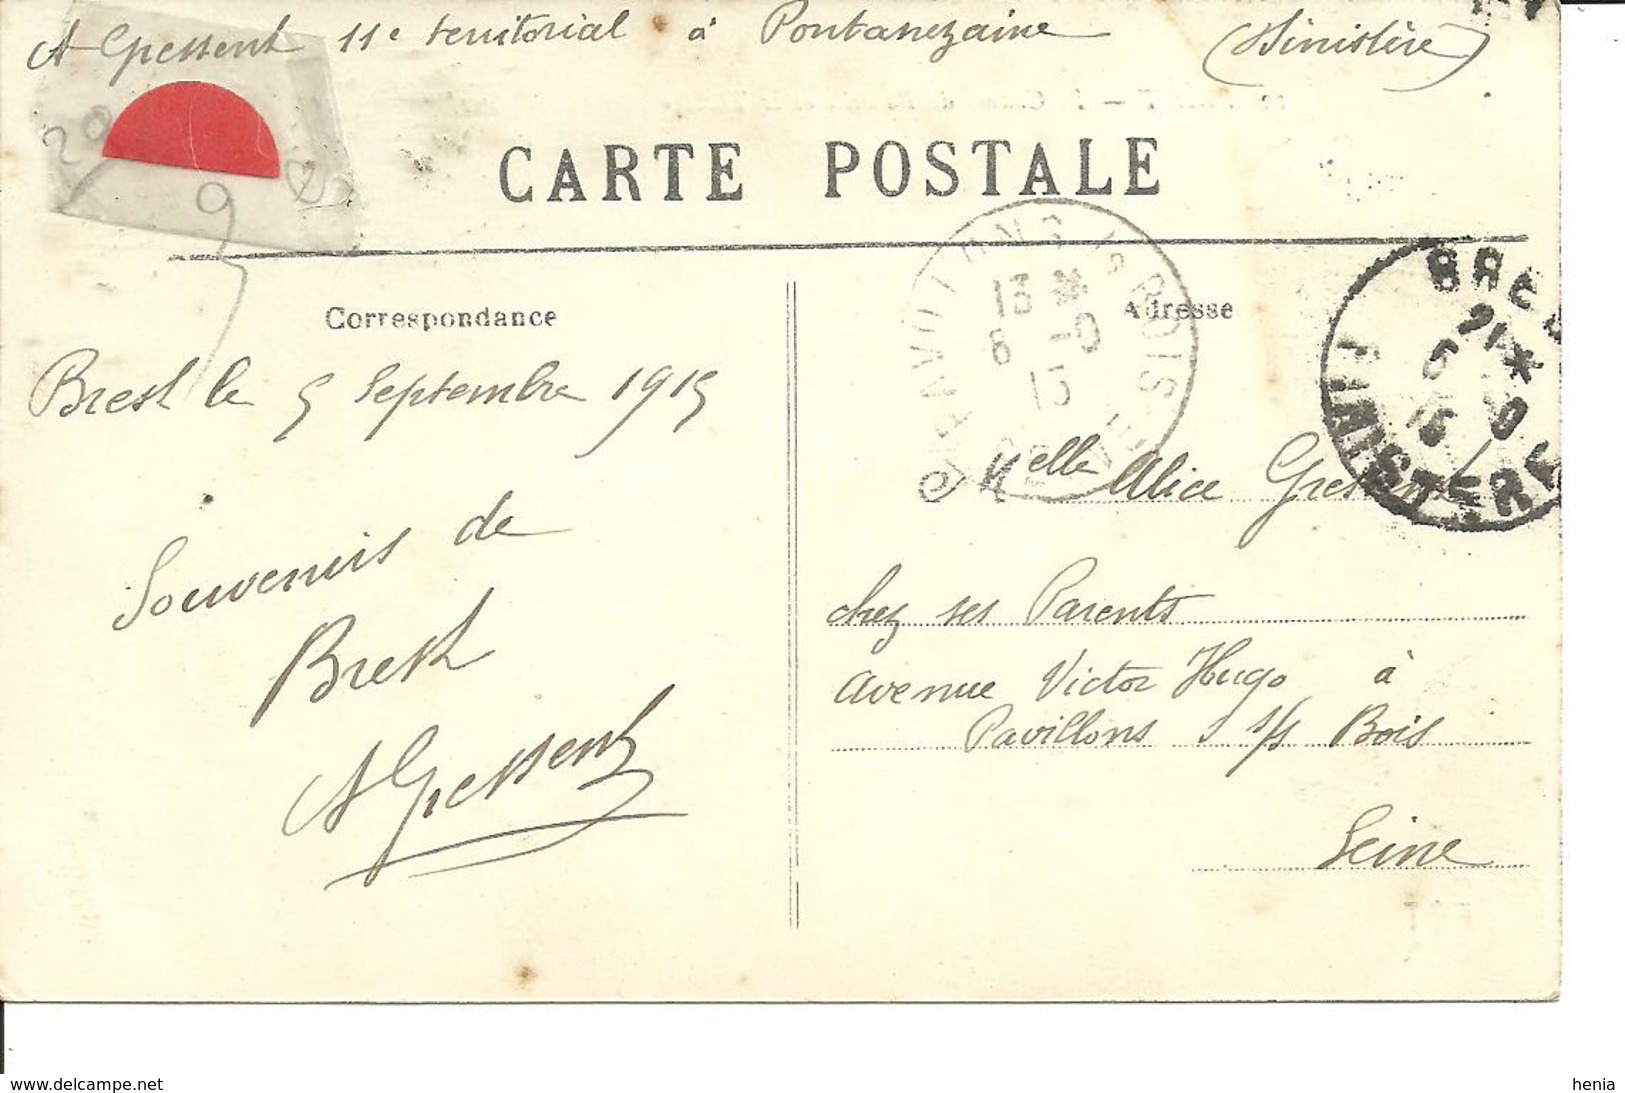 A Gressent 11e territorial à Pontanezaine (Finistère)
20
9
CARTE POSTALE
Correspondance
Adresse
PAVILLONS Ss BOIS
13 *
6 -9
15
SEINE
BREST
21 *
5 -9
15
FINISTERE
Brest le 5 Septembre 1915
Souvenirs de
Brest
A Gressent
Melle Alice Gressent
chez ses Parents
avenue Victor Hugo à
Pavillons s/s Bois
Seine
www.delcampe.net
henia